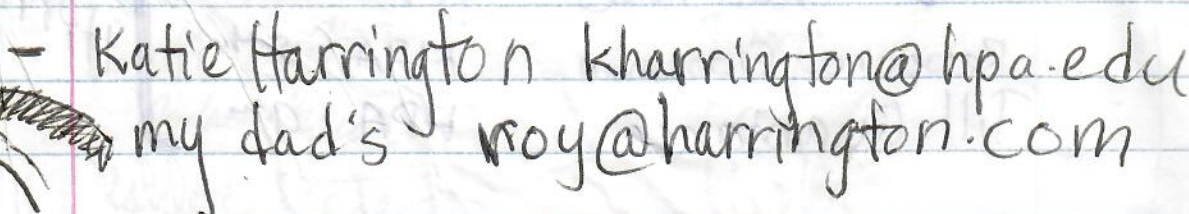 - Katie Harrington kharrington@hpa.edu
my dad's roy@harrington.com